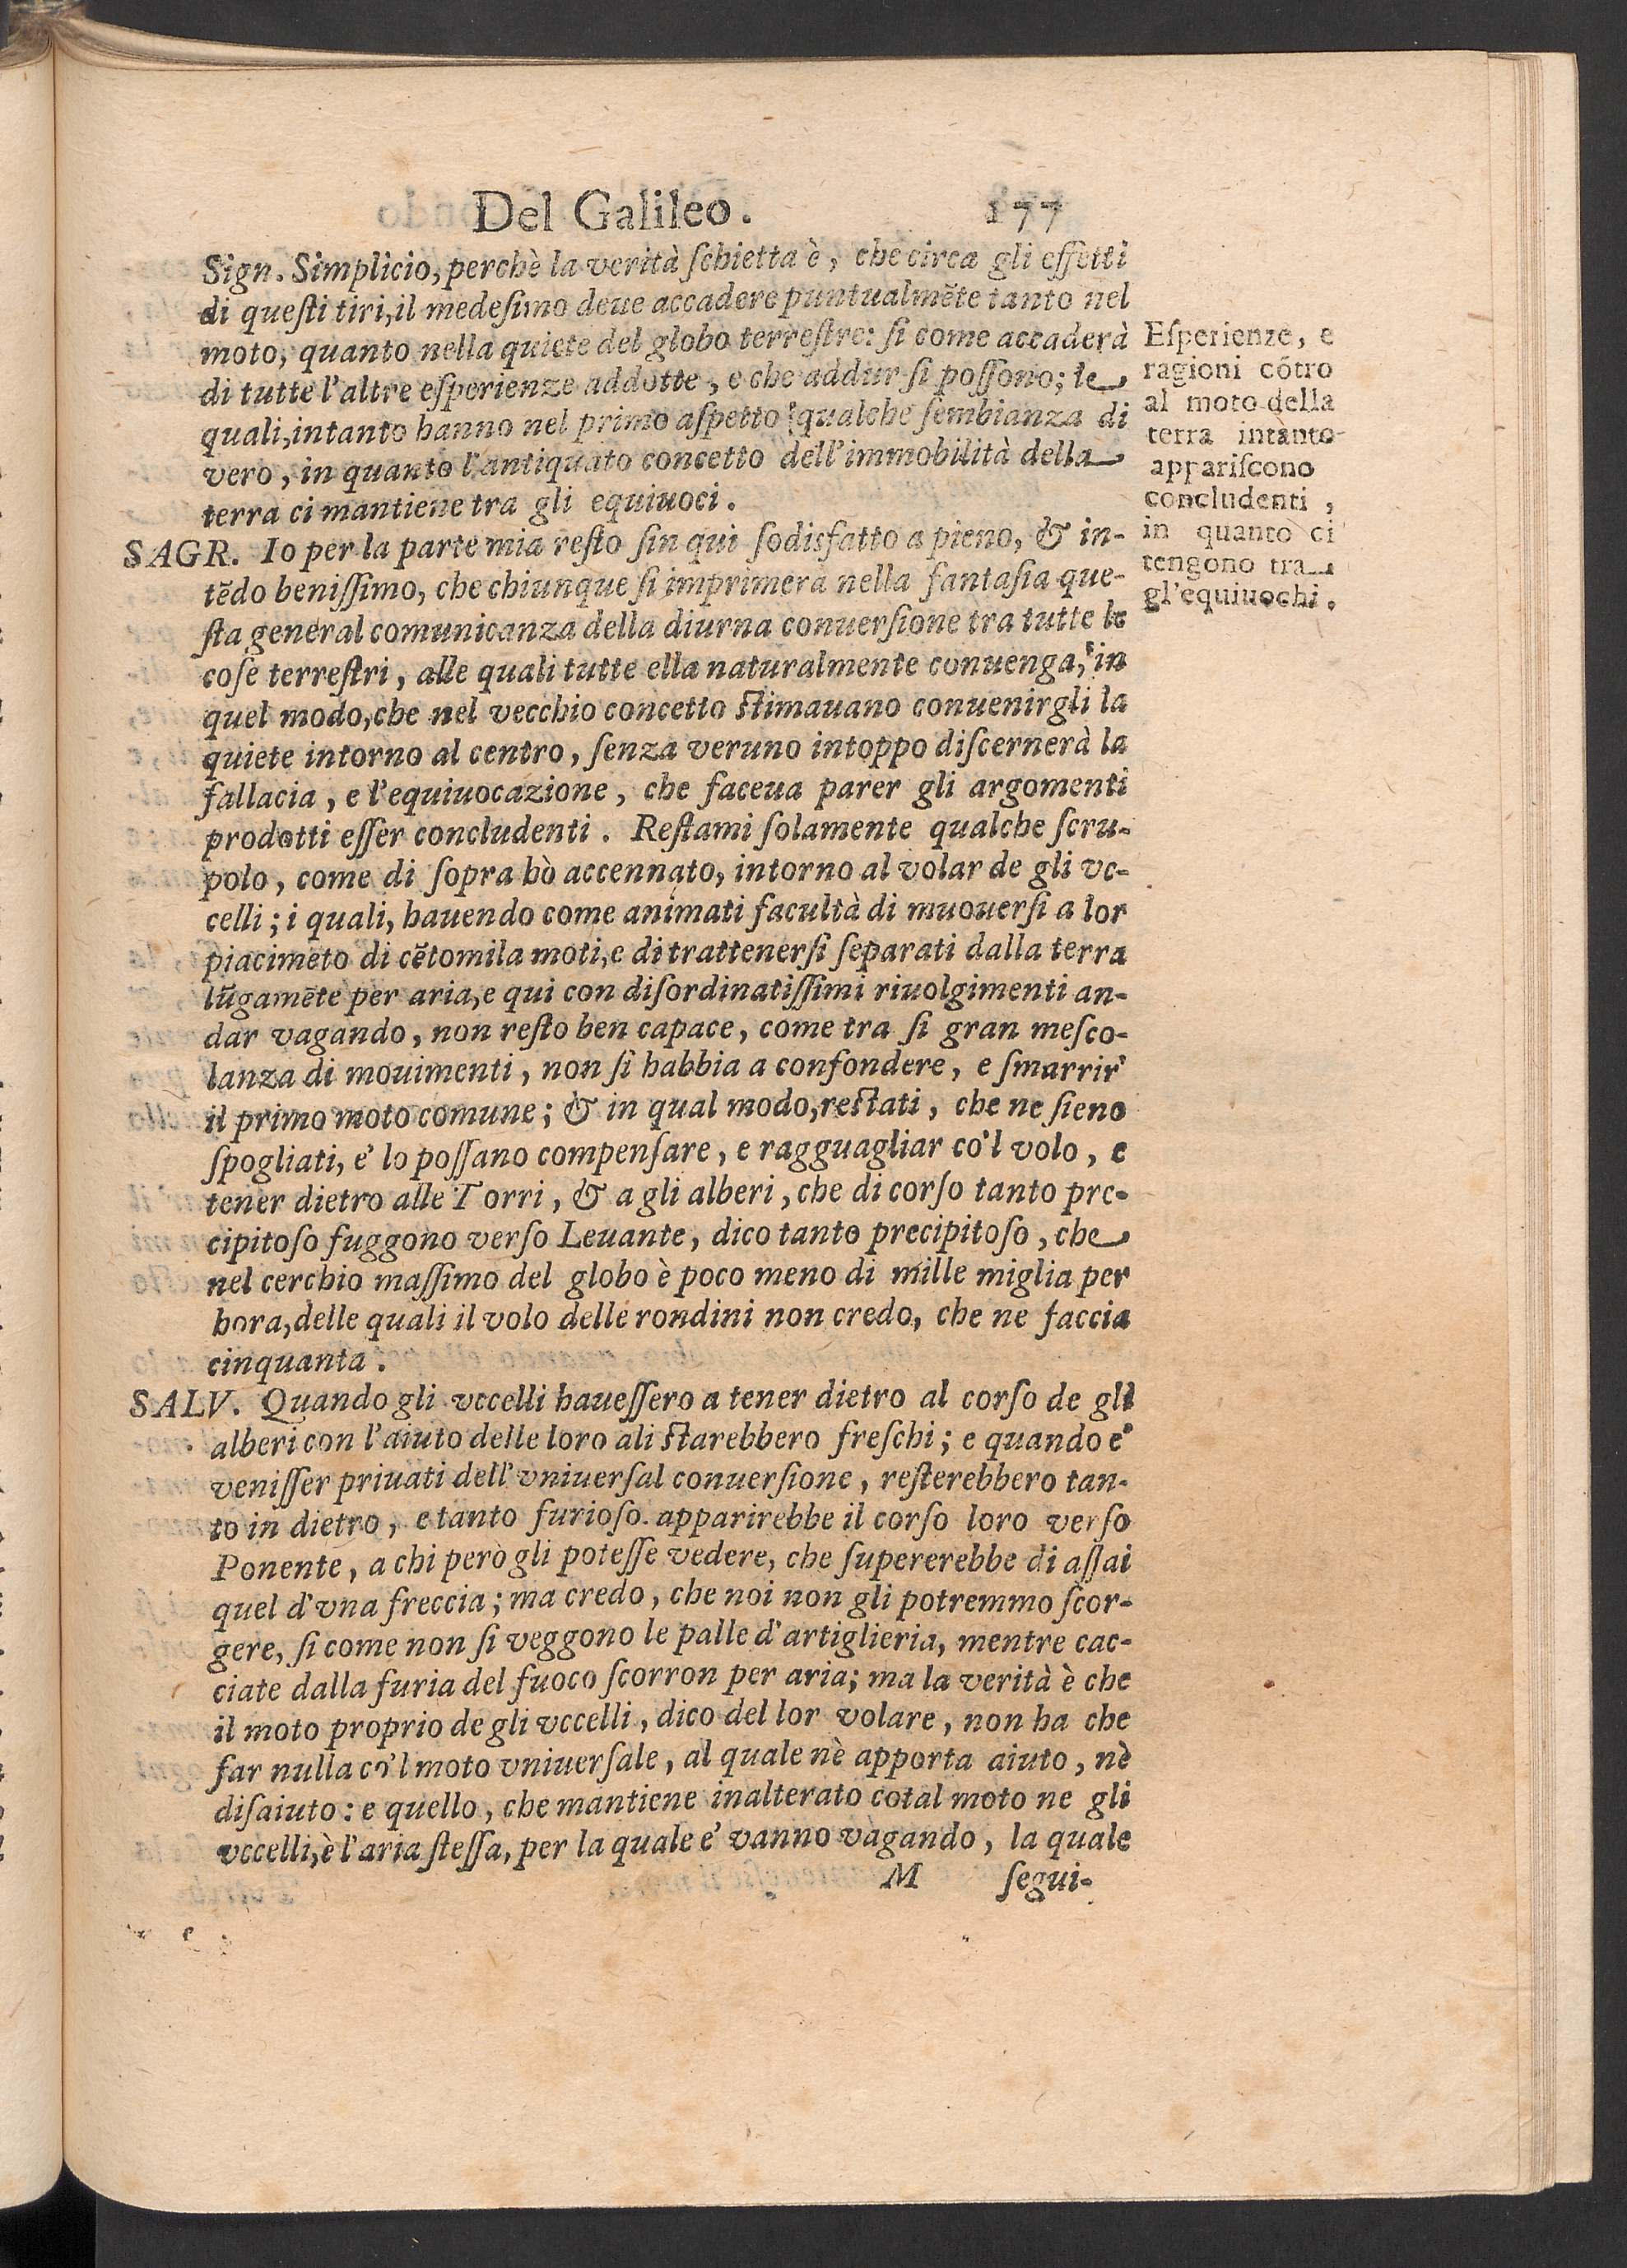 Del Galileo. 177
Sign. Simplicio, perchè la verità ſchietta è, che circa gli effetti
di queſti tiri, il medeſimo deue accadere puntualmẽte tanto nel
moto, quanto nella quiete del globo terreſtre: ſi come accaderà
di tutte l'altre eſperienze addotte, e che addur ſi poſſono; le
quali, intanto hanno nel primo aſpetto qualche ſembianza di
vero, in quanto l'antiquato concetto dell'immobilità della
terra ci mantiene tra gli equiuoci.
Eſperienze, e
ragioni cõtro
al moto della
terra intanto
appariſcono
concludenti,
in quanto ci
tengono tra
gl'equiuochi.
SAGR. Io per la parte mia reſto ſin qui ſodisfatto a pieno, & in-
tẽdo beniſſimo, che chiunque ſi imprimerà nella fantaſia que-
ſta general comunicanza della diurna conuerſione tra tutte le
coſe terreſtri, alle quali tutte ella naturalmente conuenga, in
quel modo, che nel vecchio concetto ſtimauano conuenirgli la
quiete intorno al centro, ſenza veruno intoppo diſcernerà la
fallacia, e l'equiuocazione, che faceua parer gli argomenti
prodotti eſſer concludenti. Reſtami ſolamente qualche ſcru-
polo, come di ſopra hò accennato, intorno al volar de gli vc-
celli; i quali, hauendo come animati facultà di muouerſi a lor
piacimẽto di cẽtomila moti, e di trattenerſi ſeparati dalla terra
lũgamẽte per aria, e qui con diſordinatiſſimi riuolgimenti an-
dar vagando, non reſto ben capace, come tra ſi gran meſco-
lanza di mouimenti, non ſi habbia a confondere, e ſmarrir
il primo moto comune; & in qual modo, reſtati, che ne ſieno
ſpogliati, e' lo poſſano compenſare, e ragguagliar co'l volo, e
tener dietro alle Torri, & a gli alberi, che di corſo tanto pre-
cipitoſo fuggono verſo Leuante, dico tanto precipitoſo, che
nel cerchio maſſimo del globo è poco meno di mille miglia per
hora, delle quali il volo delle rondini non credo, che ne faccia
cinquanta.
SALV. Quando gli vccelli haueſſero a tener dietro al corſo de gli
alberi con l'aiuto delle loro ali ſtarebbero freſchi; e quando e'
veniſſer priuati dell'vniuerſal conuerſione, reſterebbero tan-
to in dietro, e tanto furioſo apparirebbe il corſo loro verſo
Ponente, a chi però gli poteſſe vedere, che ſupererebbe di aſſai
quel d'vna freccia; ma credo, che noi non gli potremmo ſcor-
gere, ſi come non ſi veggono le palle d'artiglieria, mentre cac-
ciate dalla furia del fuoco ſcorron per aria; ma la verità è che
il moto proprio de gli vccelli, dico del lor volare, non ha che
far nulla co'l moto vniuerſale, al quale nè apporta aiuto, nè
diſaiuto: e quello, che mantiene inalterato cotal moto ne gli
vccelli, è l'aria ſteſſa, per la quale e' vanno vagando, la quale
M ſegui-